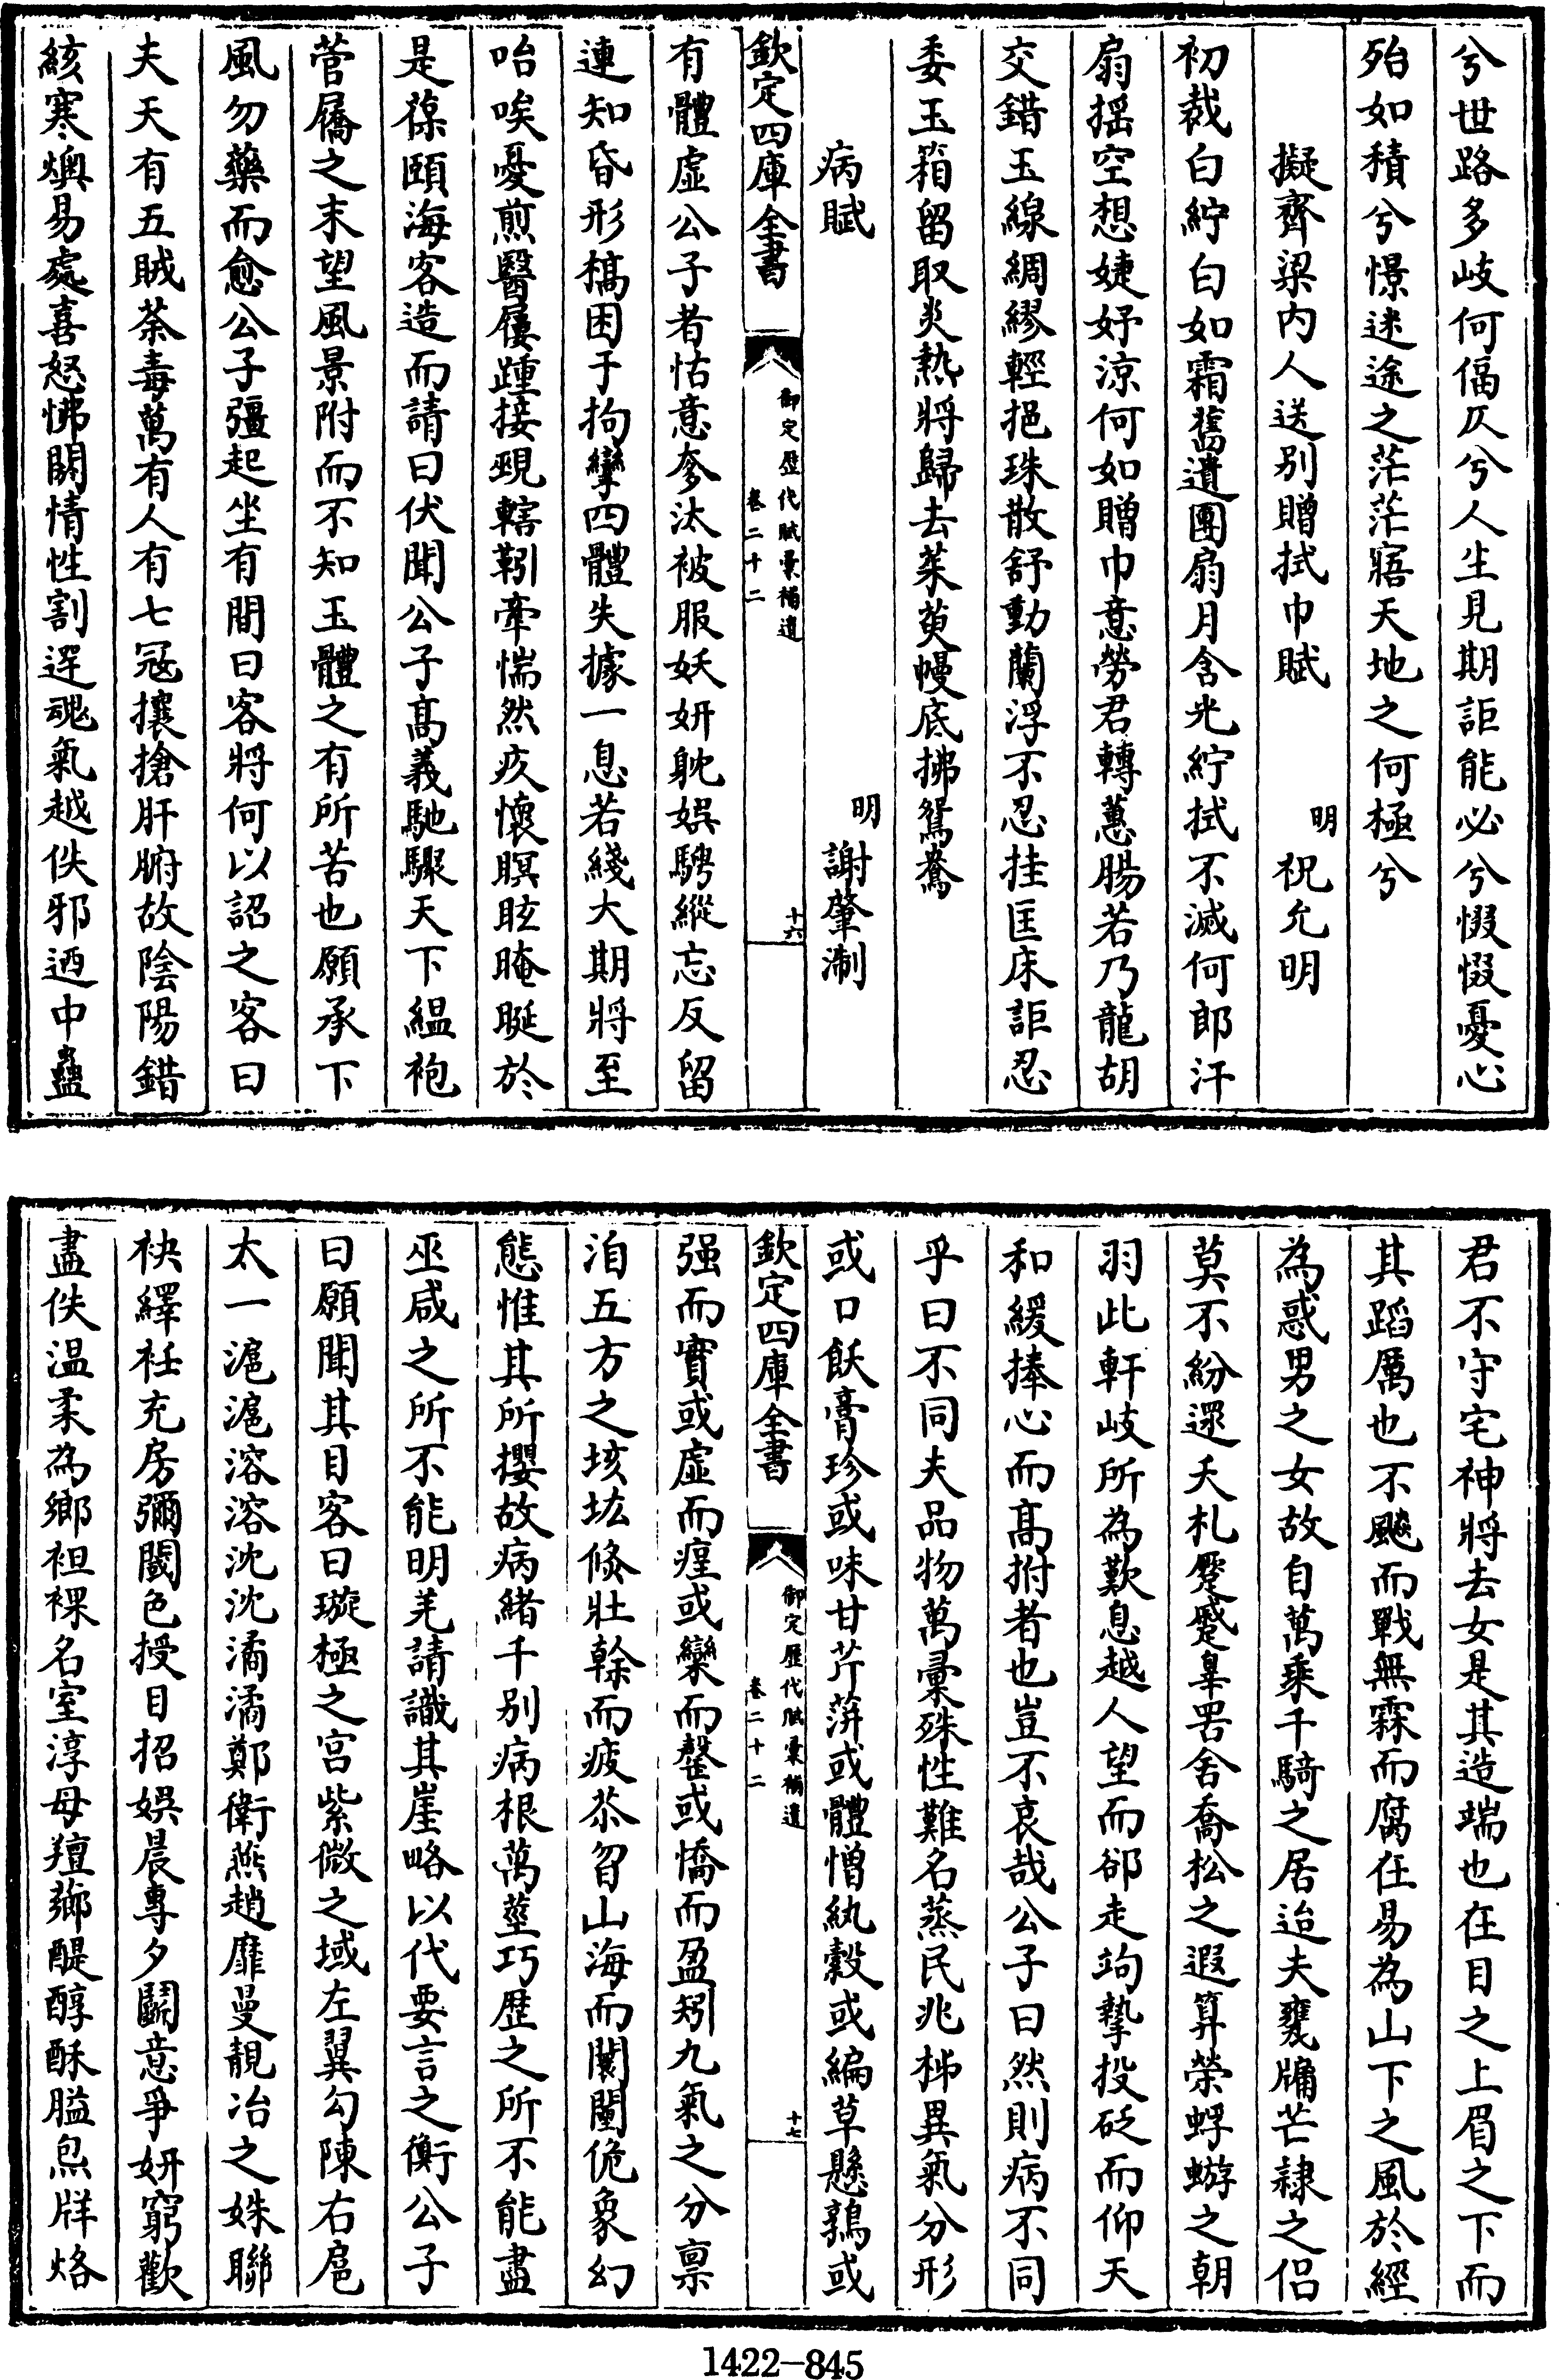 兮世路多岐何偪仄兮人生見期詎能必兮惙惙憂心
殆如積兮憬迷途之茫茫寤天地之何極兮
擬齊梁内人送别贈拭巾賦 明 祝允明
初裁白紵白如霜舊遺團扇月含光紵拭不滅何郎汗
扇摇空想婕妤涼何如贈巾意勞君轉蕙腸若乃龍胡
交錯玉線綢繆輕挹珠散舒動蘭浮不忍挂匡床詎忍
委玉箱留取炎熱將歸去茱萸幔底拂鴛鴦
病賦 明 謝肇淛
欽定四庫全書 御定歷代賦彙補遺 卷二十二 十六
有體虚公子者怙意奓汰被服妖妍躭娱騁縱忘反留
連知昏形槁困于拘攣四體失據一息若綫大期將至
咍唉憂煎醫屨踵接覡轄靷牽惴然疚懷瞑眩晻暆於
是葆頤海客造而請曰伏聞公子髙義馳驟天下緼袍
菅屩之末望風景附而不知玉體之有所苦也願承下
風勿藥而愈公子彊起坐有間曰客將何以詔之客曰
夫天有五賊荼毒萬有人有七冦攘搶肝腑故陰陽錯
絃寒燠易處喜怒怫闕情性割逕魂氣越佚邪迺中蠱
君不守宅神將去女是其造端也在目之上眉之下而
其蹈厲也不颷而戰無霖而腐在易為山下之風於經
為惑男之女故自萬乘千騎之居迨夫甕牖芒隸之侣
莫不紛還夭札蹙蹙辠罟舍喬松之遐算榮蜉蝣之朝
羽此軒岐所為歎息越人望而郤走竘摯投砭而仰天
和緩捧心而髙拊者也豈不哀哉公子曰然則病不同
乎曰不同夫品物萬彚殊性難名蒸民兆梯異氣分形
或口飫膏珍或味甘芹蓱或體憎紈縠或編草懸鶉或
欽定四庫全書 御定歷代賦彙補遺 卷二十二 十七
强而實或虚而痓或欒而罄或憍而盈矧九氣之分禀
洎五方之垓坫倏壯榦而疲苶曶山海而闤闠佹象幻
態惟其所攖故病緒千别病根萬莖巧歴之所不能盡
巫咸之所不能明羌請識其崖略以代要言之衡公子
曰願聞其目客曰璇極之宫紫微之域左翼勾陳右扈
太一滬滬溶溶沈沈潏潏鄭衛燕趙靡曼靚冶之姝聯
袂繹衽充房彌闥色授目招娱晨專夕鬭意爭妍窮歡
盡佚温柔為鄉袒裸名室淳母羶薌醍醇酥膉炰牂烙
1422-845